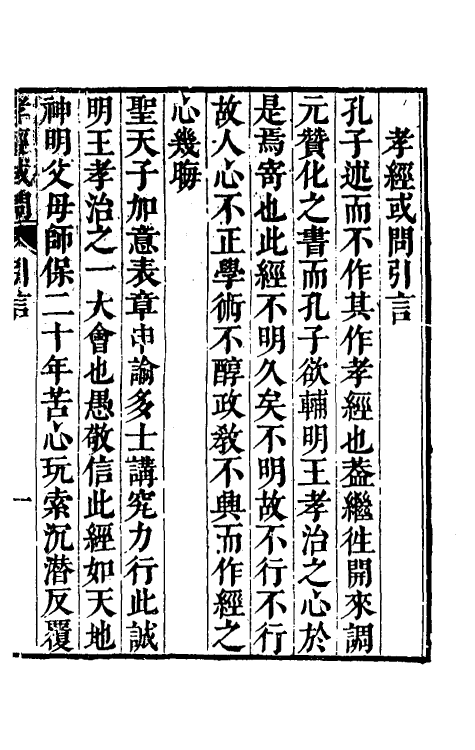 孝經或問引言
孔子述而不作其作孝經也葢繼徃開來調
元贊化之書而孔子欲輔明王孝治之心於
是焉寄也此經不明久矣不明故不行不行
故人心不正學術不醇政敎不興而作經之
心幾晦
聖天子加意表章申諭多士講究力行此誠
明王孝治之一大會也愚敬信此經如天地
神明父母師保二十年苦心玩索沉潛反覆
孝經或問 引言 一